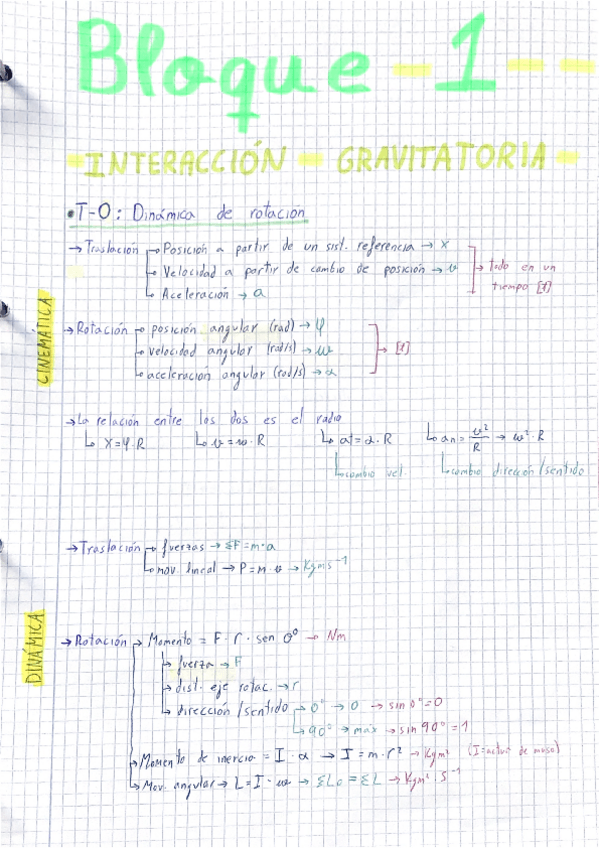 Bloque - 1 - -
- INTERACCIÓN - GRAVITATORIA -
• T-0: Dinámica de rotación
CINEMÁTICA
→ Traslación → Posición a partir de un sist. referencia → x
→ Velocidad a partir de cambio de posición → v → todo en un
tiempo [t]
→ Aceleración → a
→ Rotación → posición angular (rad) → φ
→ velocidad angular (rad/s) → ω → [t]
→ aceleración angular (rad/s) → α
→ La relación entre los dos es el radio
↳ x = φ·R ↳ v = ω·R ↳ at = α·R ↳ an = v²/R → ω²·R
↳ cambio vel. ↳ cambio dirección/sentido
DINÁMICA
→ Traslación → fuerzas → ΣF = m·a
→ mov. lineal → P = m·v → Kg m s⁻¹
→ Rotación → Momento = F · r · sen θ° → Nm
↳ fuerza → F
↳ dist. eje rotac. → r
↳ dirección/sentido → 0° → 0 → sin 0° = 0
↳ 90° → máx → sin 90° = 1
→ Momento de inercia = I · α → I = m·r² → Kg m² (I = de masa)
→ Mov. angular → L = I · ω → ΣL₀ = ΣL → Kg m² · s⁻¹